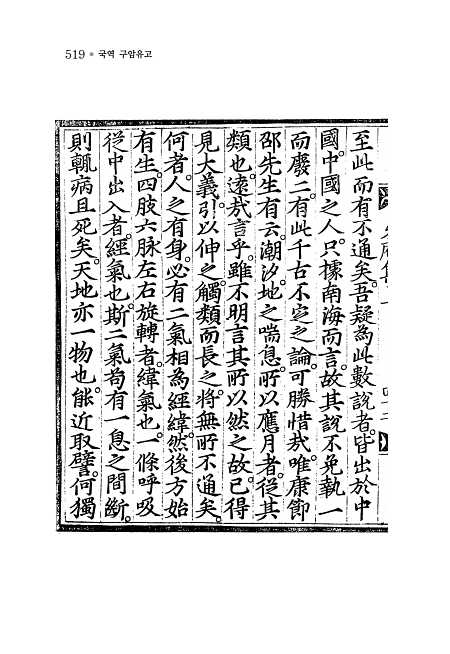 519 • 국역 구암유고
至此而有不通矣。吾疑爲此數說者。皆出於中
國。中國之人。只據南海而言。故其說不免執一
而廢二。有此千古不定之論。可勝惜哉。唯康節
邵先生有云。潮汐。地之喘息。所以應月者。從其
類也。遠哉言乎。雖不明言其所以然之故。已得
見大義。引以伸之。觸類而長之。將無所不通矣。
何者。人之有身。必有二氣相爲經緯。然後方始
有生。四肢六脉左右旋轉者。緯氣也。一條呼吸
從中出入者。經氣也。斯二氣苟有一息之間斷。
則輒病且死矣。天地亦一物也。能近取譬。何獨